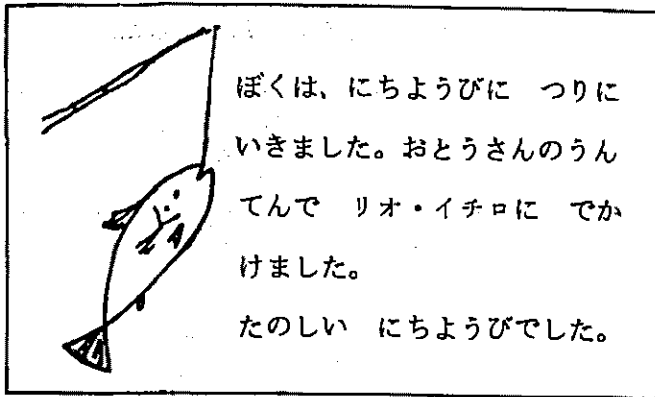 ぼくは、にちようびに　つりに
いきました。おとうさんのうん
てんで　リオ・イチロに　でか
けました。
たのしい　にちようびでした。